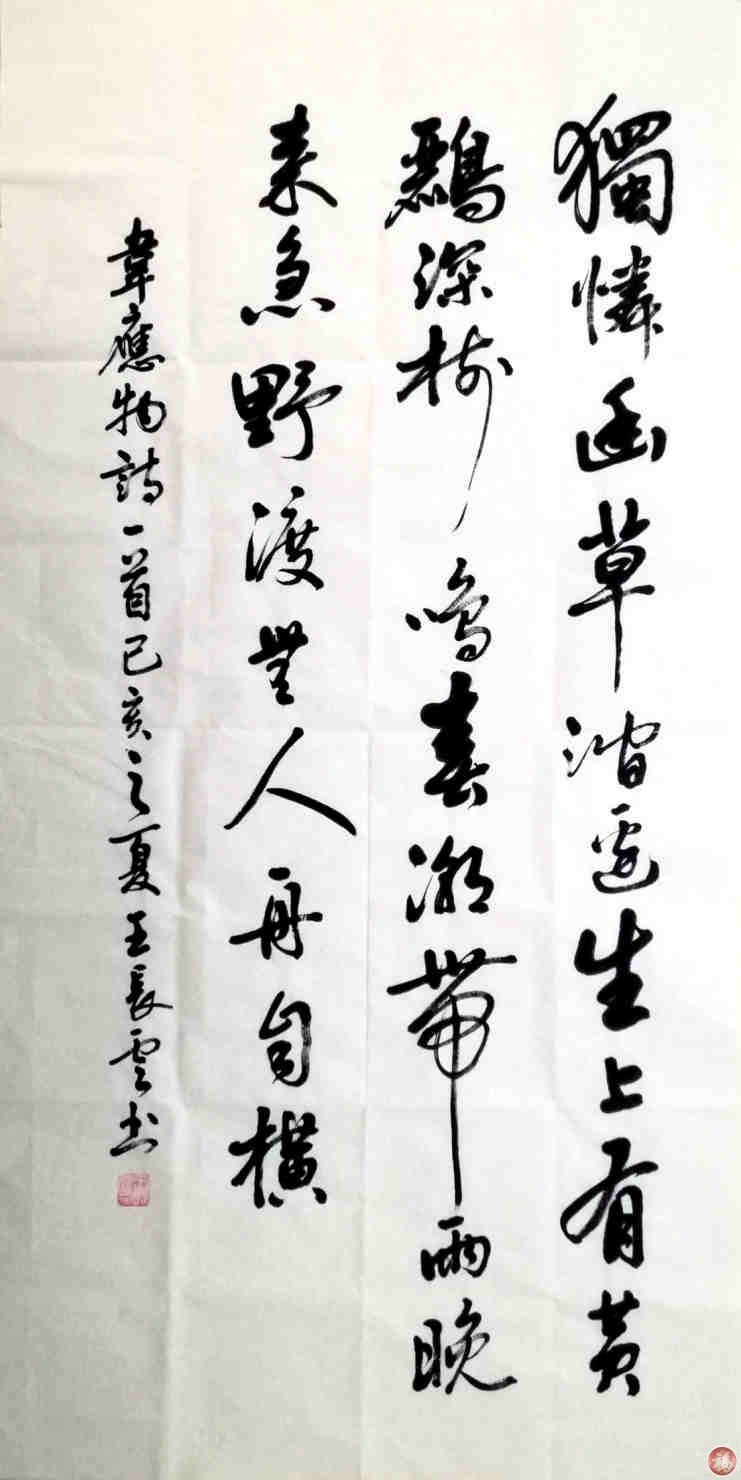 獨憐幽草澗邊生上有黄
鸝深樹鳴春潮帶雨晚
来急野渡無人舟自横
韋應物詩一首己亥之夏王長雲书
福